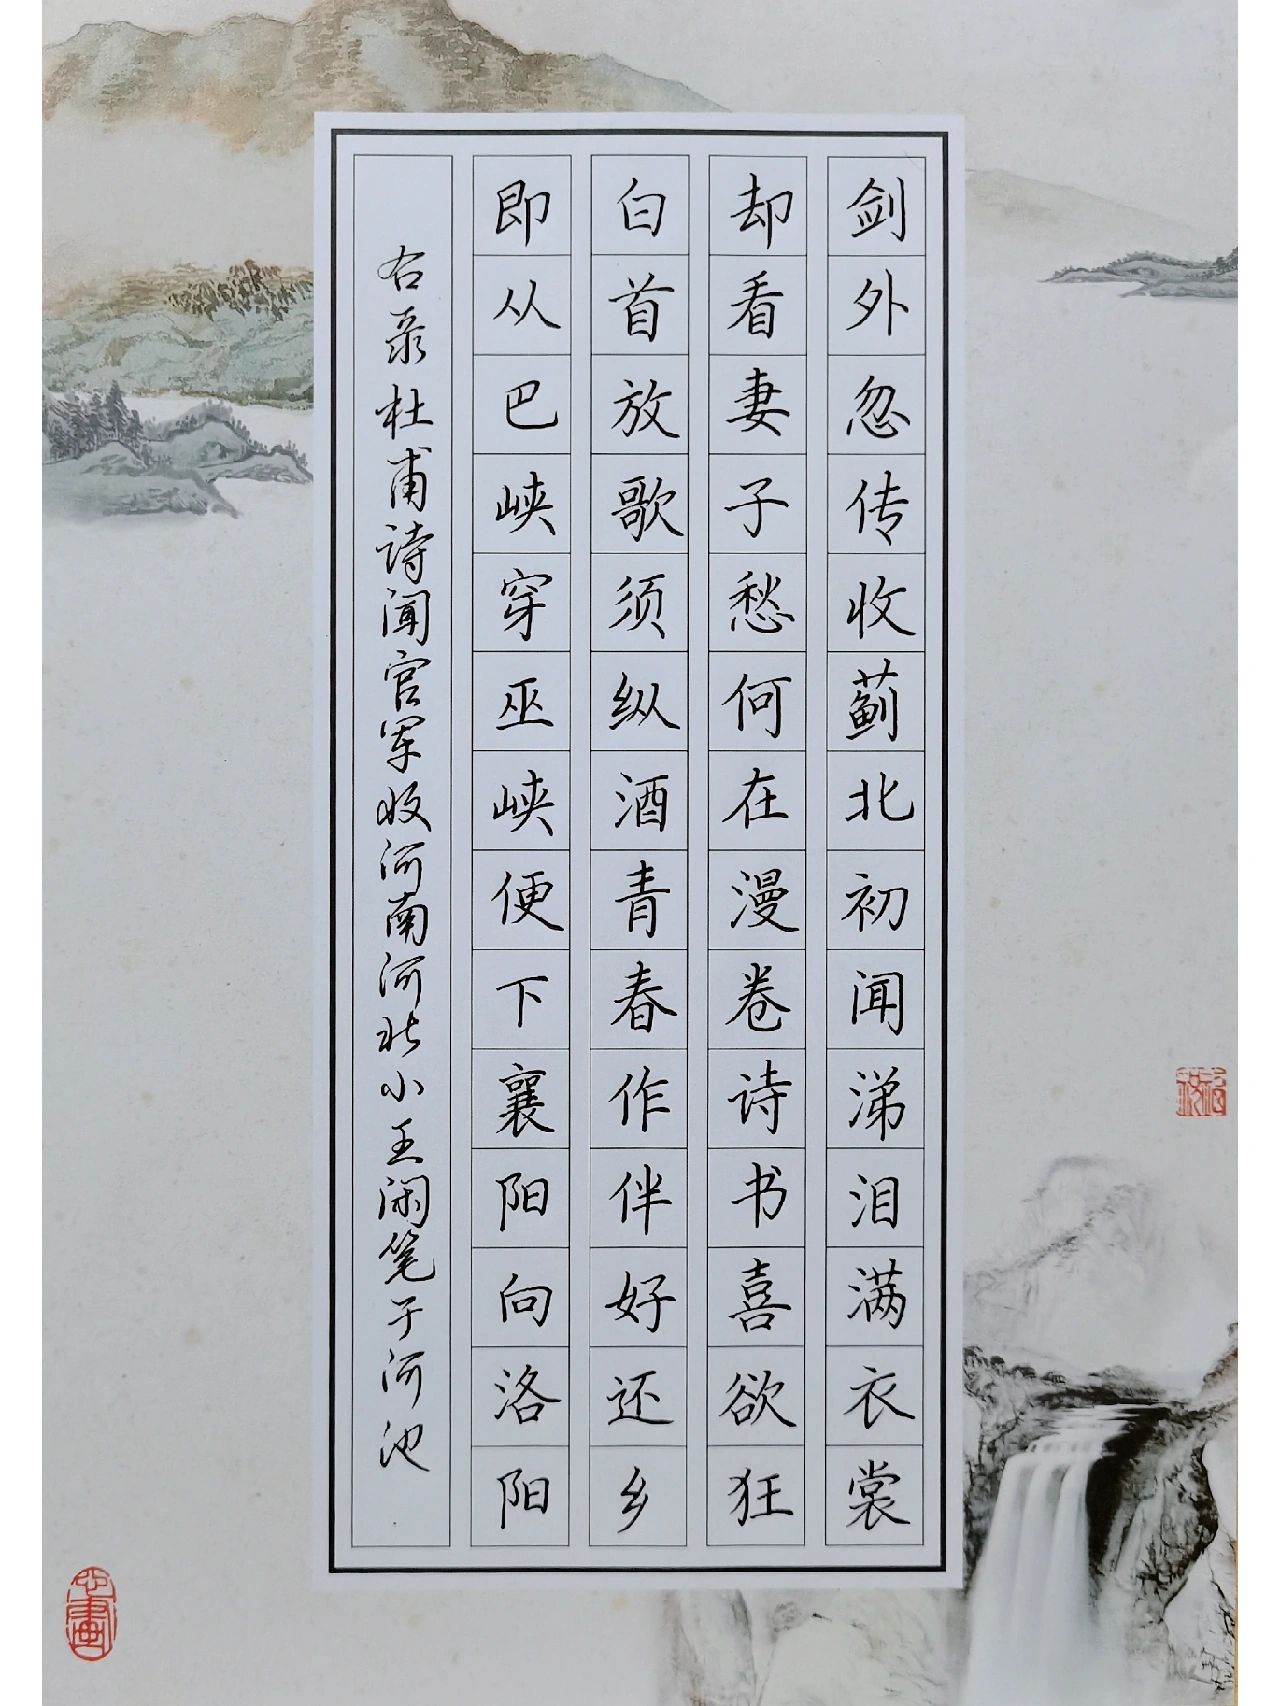 剑外忽传收蓟北初闻涕泪满衣裳
却看妻子愁何在漫卷诗书喜欲狂
白首放歌须纵酒青春作伴好还乡
即从巴峡穿巫峡便下襄阳向洛阳
右录杜甫诗闻官军收河南河北小王闲笔于河池